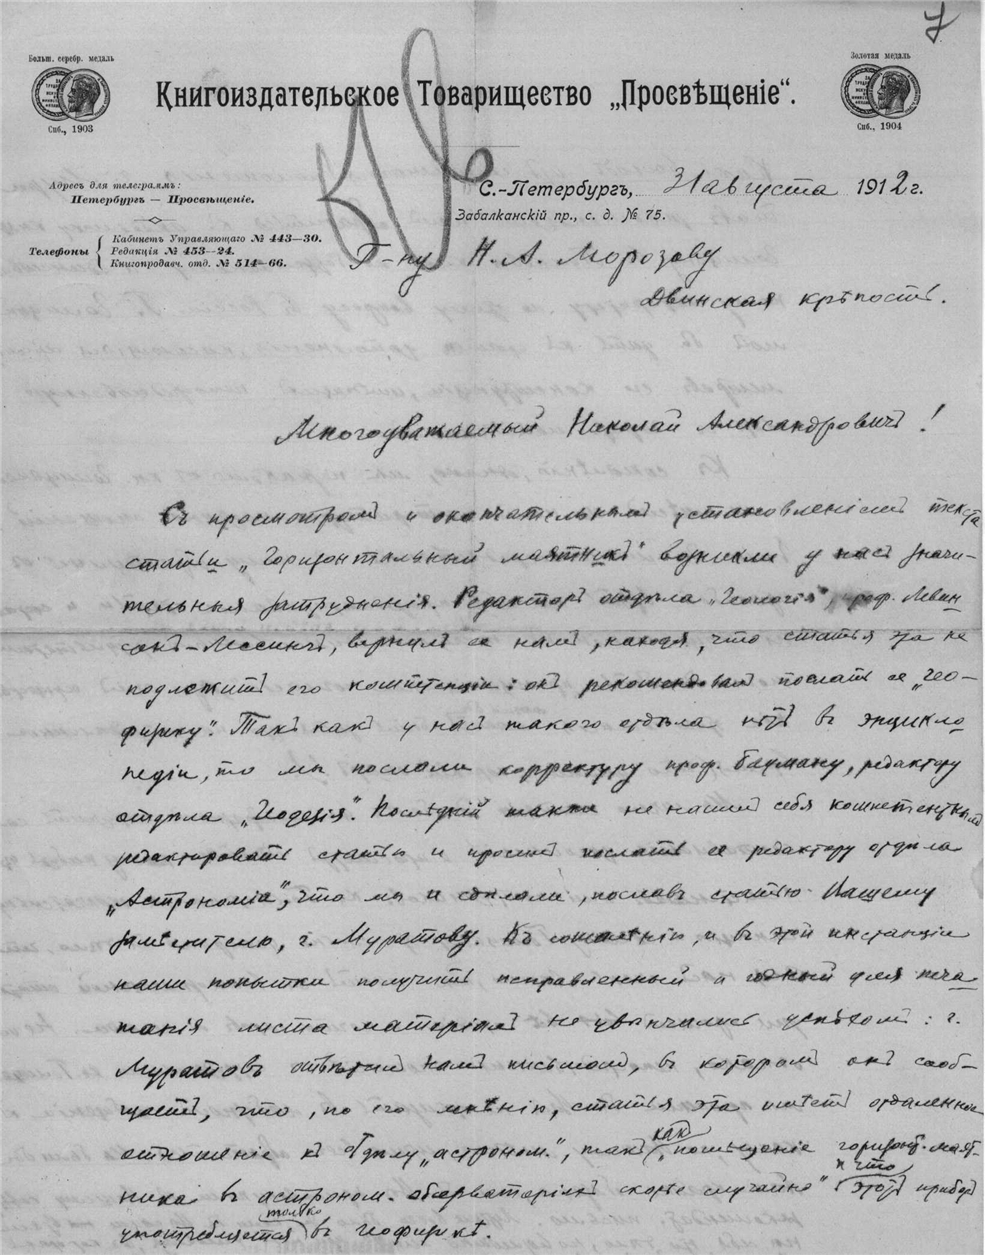 7
Больш. серебр. медаль
Спб., 1903
Золотая медаль
Спб., 1904
Книгоиздательское Товарищество „Просвѣщеніе“.
Адресъ для телеграммъ:
Петербургъ — Просвѣщеніе.
Телефоны
Кабинетъ Управляющаго № 443—30.
Редакція № 453—24.
Книгопродавч. отд. № 514—66.
С.-Петербургъ, 31 августа 1912 г.
Забалканскій пр., с. д. № 75.
Г-ну Н. А. Морозову
Двинская крѣпость.
Многоуважаемый Николай Александровичъ!
Съ просмотромъ и окончательнымъ установленіемъ текста
статьи „Горизонтальный маятникъ“ возникли у насъ значи-
тельныя затрудненія. Редакторъ отдѣла „Геологія“, проф. Левин-
сонъ-Лессингъ, вернулъ ее намъ, находя, что статья эта не
подлежитъ его компетенціи: онъ рекомендовалъ послать ее „гео-
физику“. Такъ какъ у насъ такого отдѣла нѣтъ въ энцикло-
педіи, то мы послали корректуру проф. Бауману, редактору
отдѣла „Геодезія“. Послѣдній также не нашелъ себя компетентнымъ
редактировать статью и просилъ послать ее редактору отдѣла
„Астрономія“, что мы и сдѣлали, пославъ статью Вашему
замѣстителю, г. Муратову. Къ сожалѣнію, и въ этой инстанціи
наши попытки получить исправленный и годный для печа-
танія листа матеріалъ не увѣнчались успѣхомъ: г.
Муратовъ отвѣтилъ намъ письмомъ, въ которомъ онъ сооб-
щаетъ, что, по его мнѣнію, статья эта имѣетъ отдаленное
отношеніе къ отдѣлу „астроном.“, такъ какъ помѣщеніе горизонт. маят-
ника въ астроном. обсерваторіяхъ скорѣе случайно“ и что этотъ приборъ
употребляется только въ геофизикѣ.